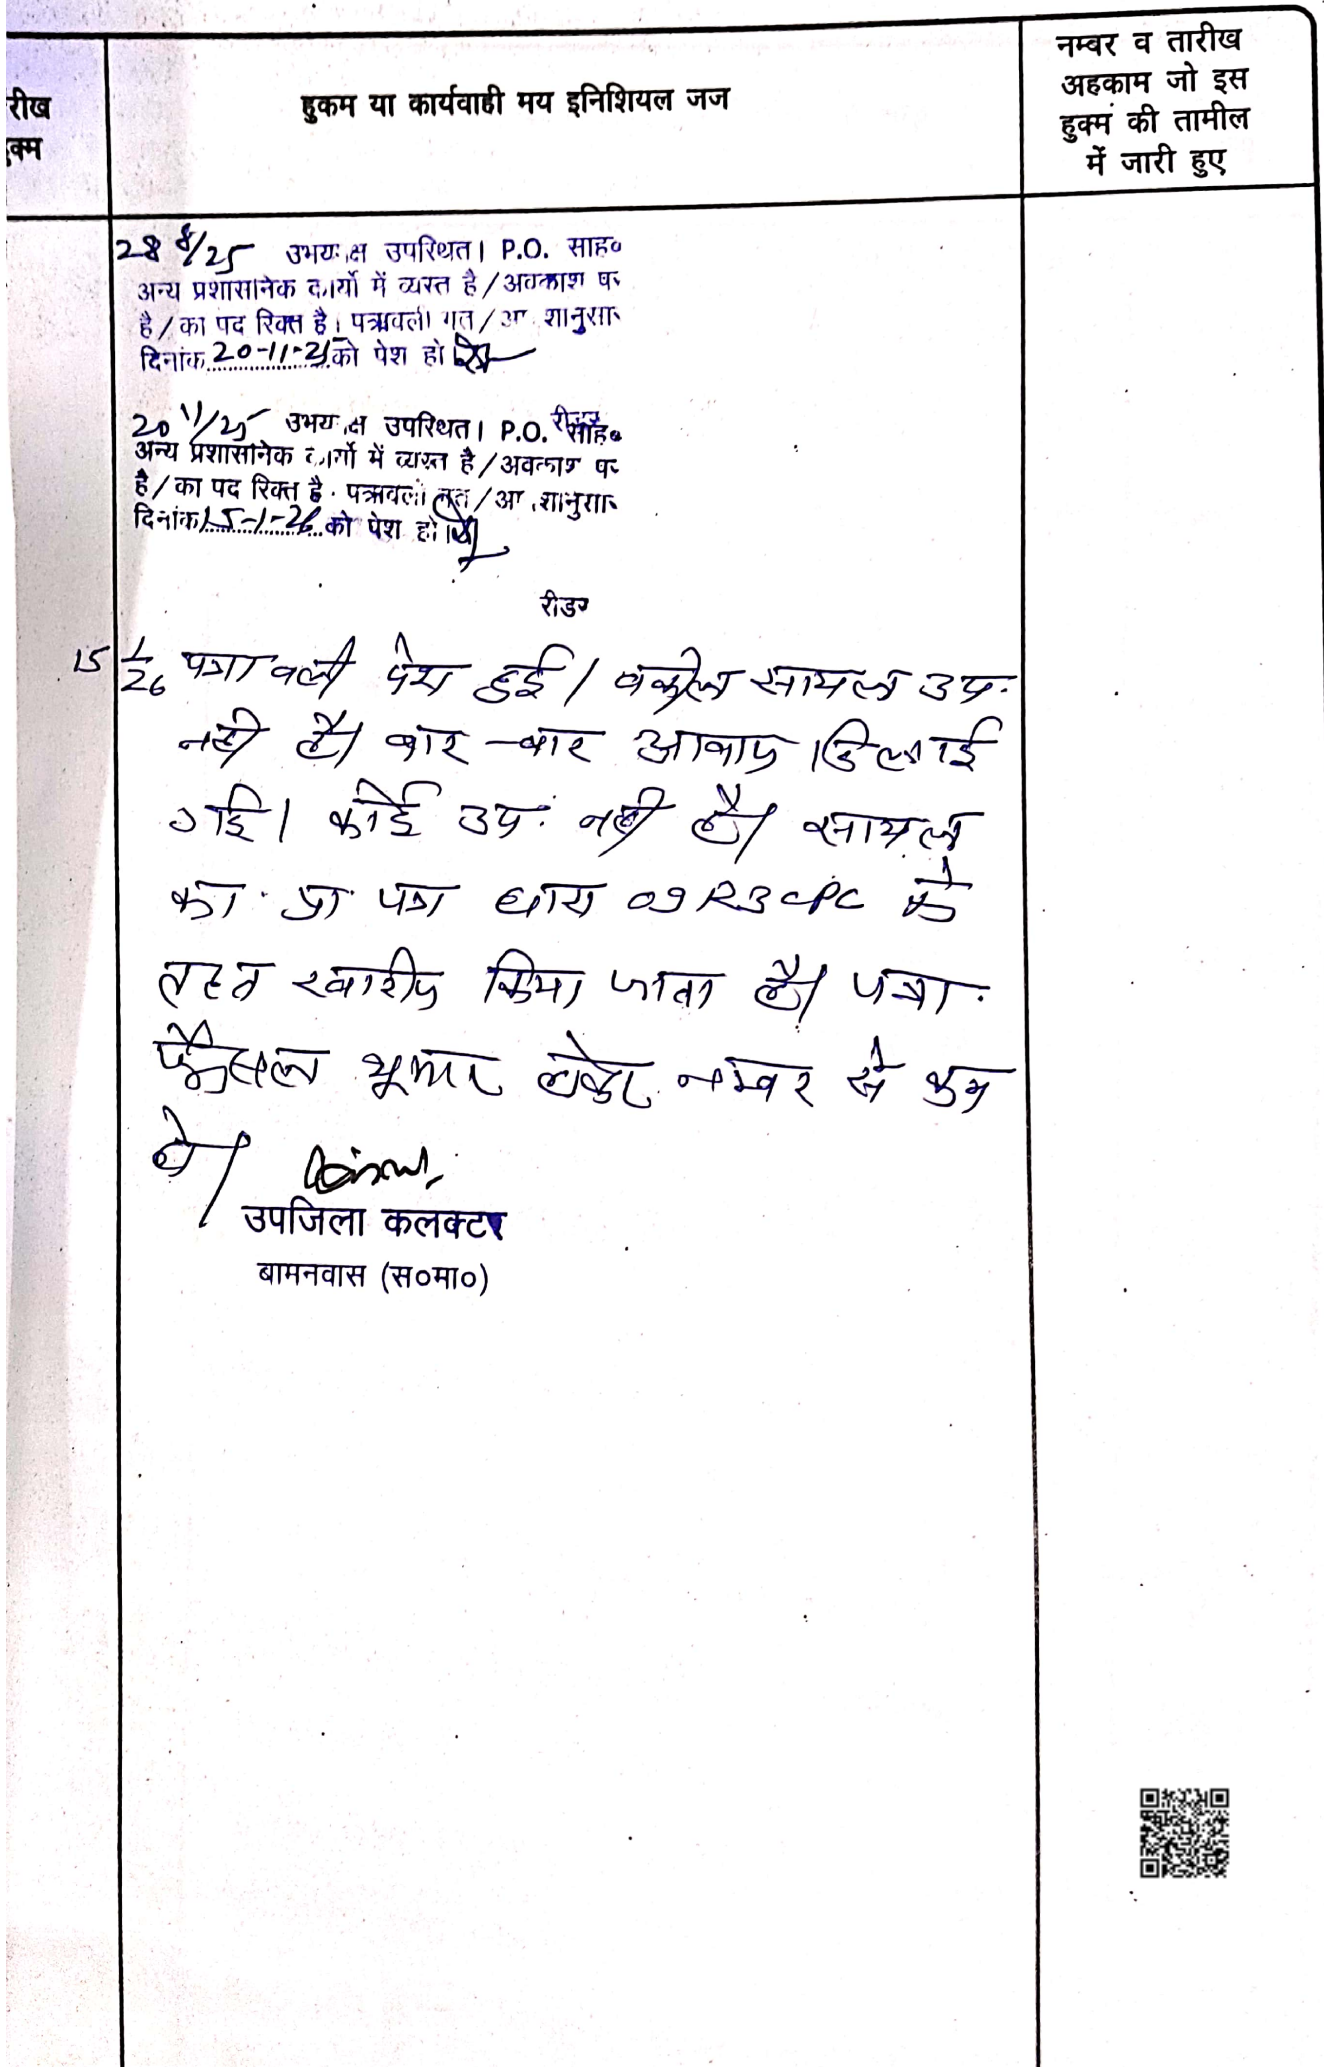 रीख
हुक्म
हुकम या कार्यवाही मय इनिशियल जज
नम्बर व तारीख
अहकाम जो इस
हुक्म की तामील
में जारी हुए
28 8/25 उभय क्ष उपस्थित। P.O. साह०
अन्य प्रशासनिक कार्यो में व्यस्त है/अवकाश पर
है/का पद रिक्त है। पत्रावली गत/आ शानुसार
दिनांक 20-11-25 को पेश हो
रीडर
20 11/25 उभय क्ष उपस्थित। P.O. साह०
अन्य प्रशासनिक कार्यो में व्यस्त है/अवकाश पर
है/का पद रिक्त है. पत्रावली गत/आ शानुसार
दिनांक 15-1-26 को पेश हो
रीडर
15 1/26 पत्रावली पेश हुई। वकील सायल उप.
नही है। बार-बार आवाज दिलाई
गई। कोई उप. नही है। सायल
का प्रा. पत्र धारा 09 R3 CPC के
तहत खारीज किया जाता है। पत्रा.
फैसल शुमार होकर नम्बर से कम
हो।
उपजिला कलक्टर
बामनवास (स०मा०)